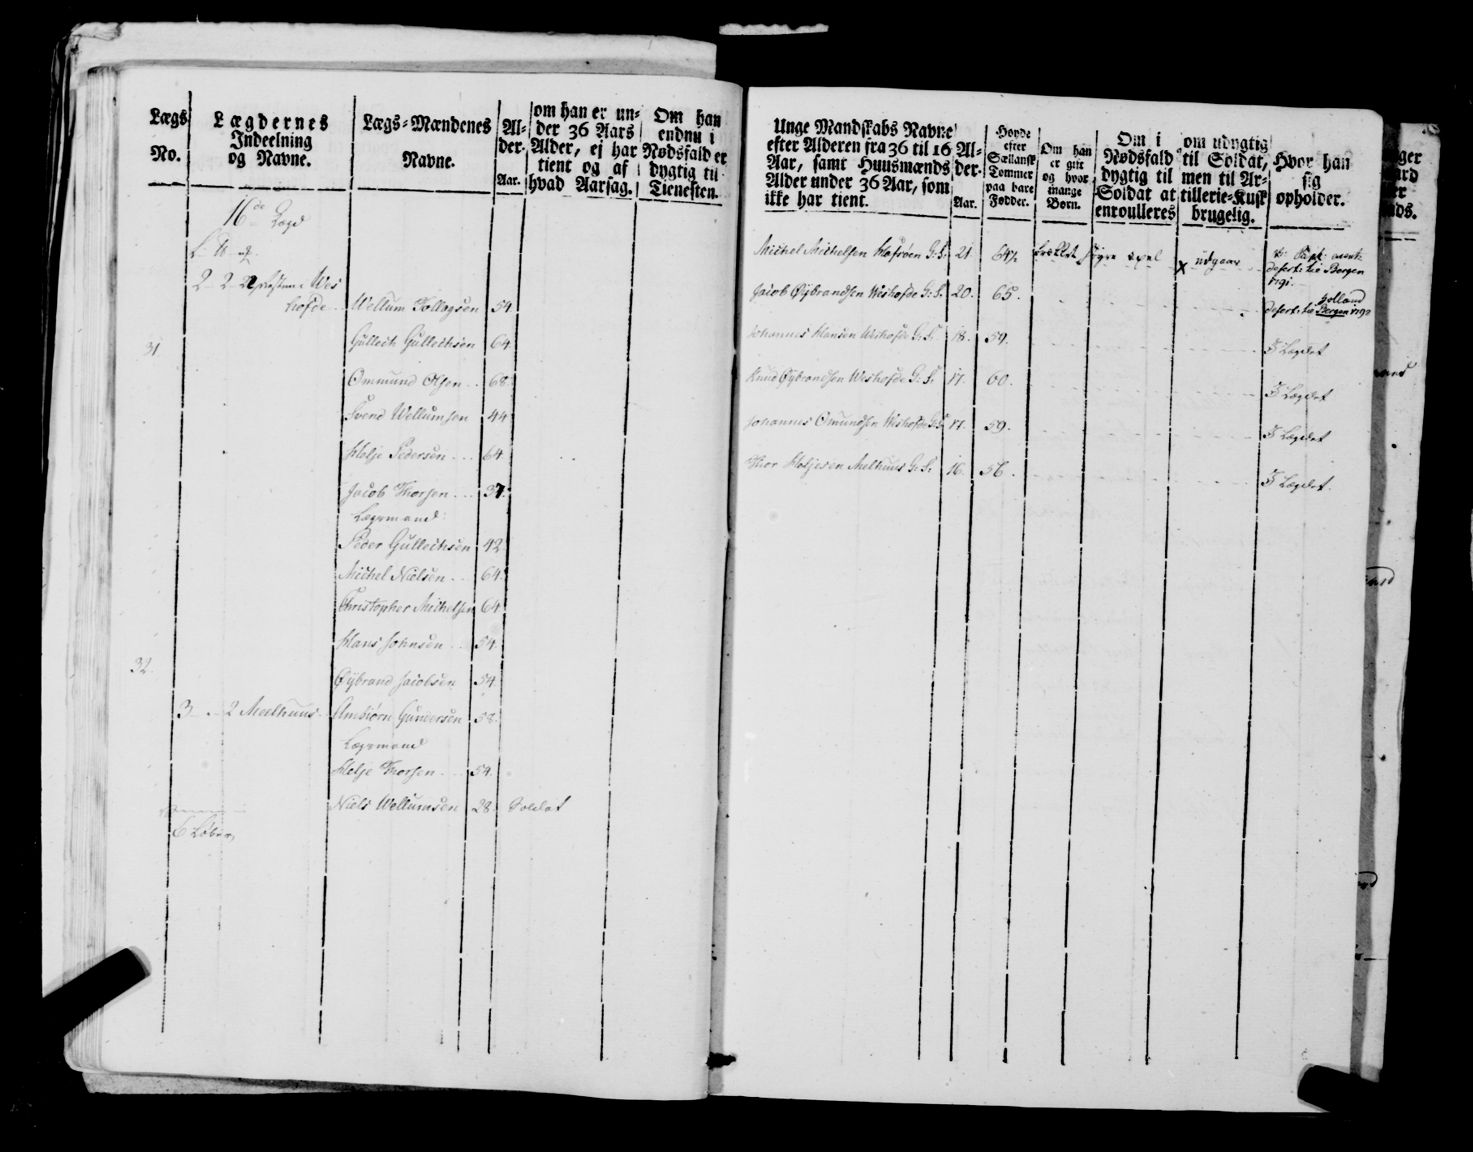 Lægs
No.
Lægdernes
Indeelning
og Navne.
Lægs-Mændenes
Navne.
Al-
der.
Aar.
om han er un-
der 36 Aars
Alder, ej har
tient og af
hvad Aarsag.
Om han
endnu i
Nødsfald er
dygtig til
Tienesten.
16de Lægd
2 2
hofde
Wellum Tollagsen 54
31
Gullech Gullechsen 64
Ommund Olsen 68
Svend Wellumsen 44
Holje Pedersen 64
Jacob Thorsen 37
Lægsmand
Peder Gullechsen 42
Michel Nielsen 64
Christopher Michelsen 64
Hans Johnsen 54
32
Øybrand Jacobsen 54
3 2 Melhuus Ambiørn Gundersen 58
Lægsmand
Holje Thorsen 54
Niels Wellumsen 28 Soldat
6 Løber
Unge Mandskabs Navne
efter Alderen fra 36 til 16
Aar, samt Huusmænds
Alder under 36 Aar, som
ikke har tient.
Al-
der.
Aar.
Høyde
efter
Siællansk
Tommer
paa bare
Fødder.
Om han
er gift
og hvor
mange
Børn.
Om i
Nødsfald
dygtig til
Soldat at
enroulleres
om udygtig
til Soldat,
men til Ar-
tillerie-Kusk
brugelig.
Hvor han
sig
opholder.
Michel Michelsen G: S: 21 64½ x udgaar
desert: til Bergen
1791
Jacob Øybrandsen Weshofde G: S: 20 65
Holland
desert: til Bergen 1792
Johannes Hansen Weshofde G: S: 18 59 I Lægdet
Knud Øybrandsen Weshofde G: S: 17 60 I Lægdet
Johannes Omundsen Weshofde G: S: 17 59 I Lægdet
Thor Holjesen Melhuus G: S: 16 56 I Lægdet